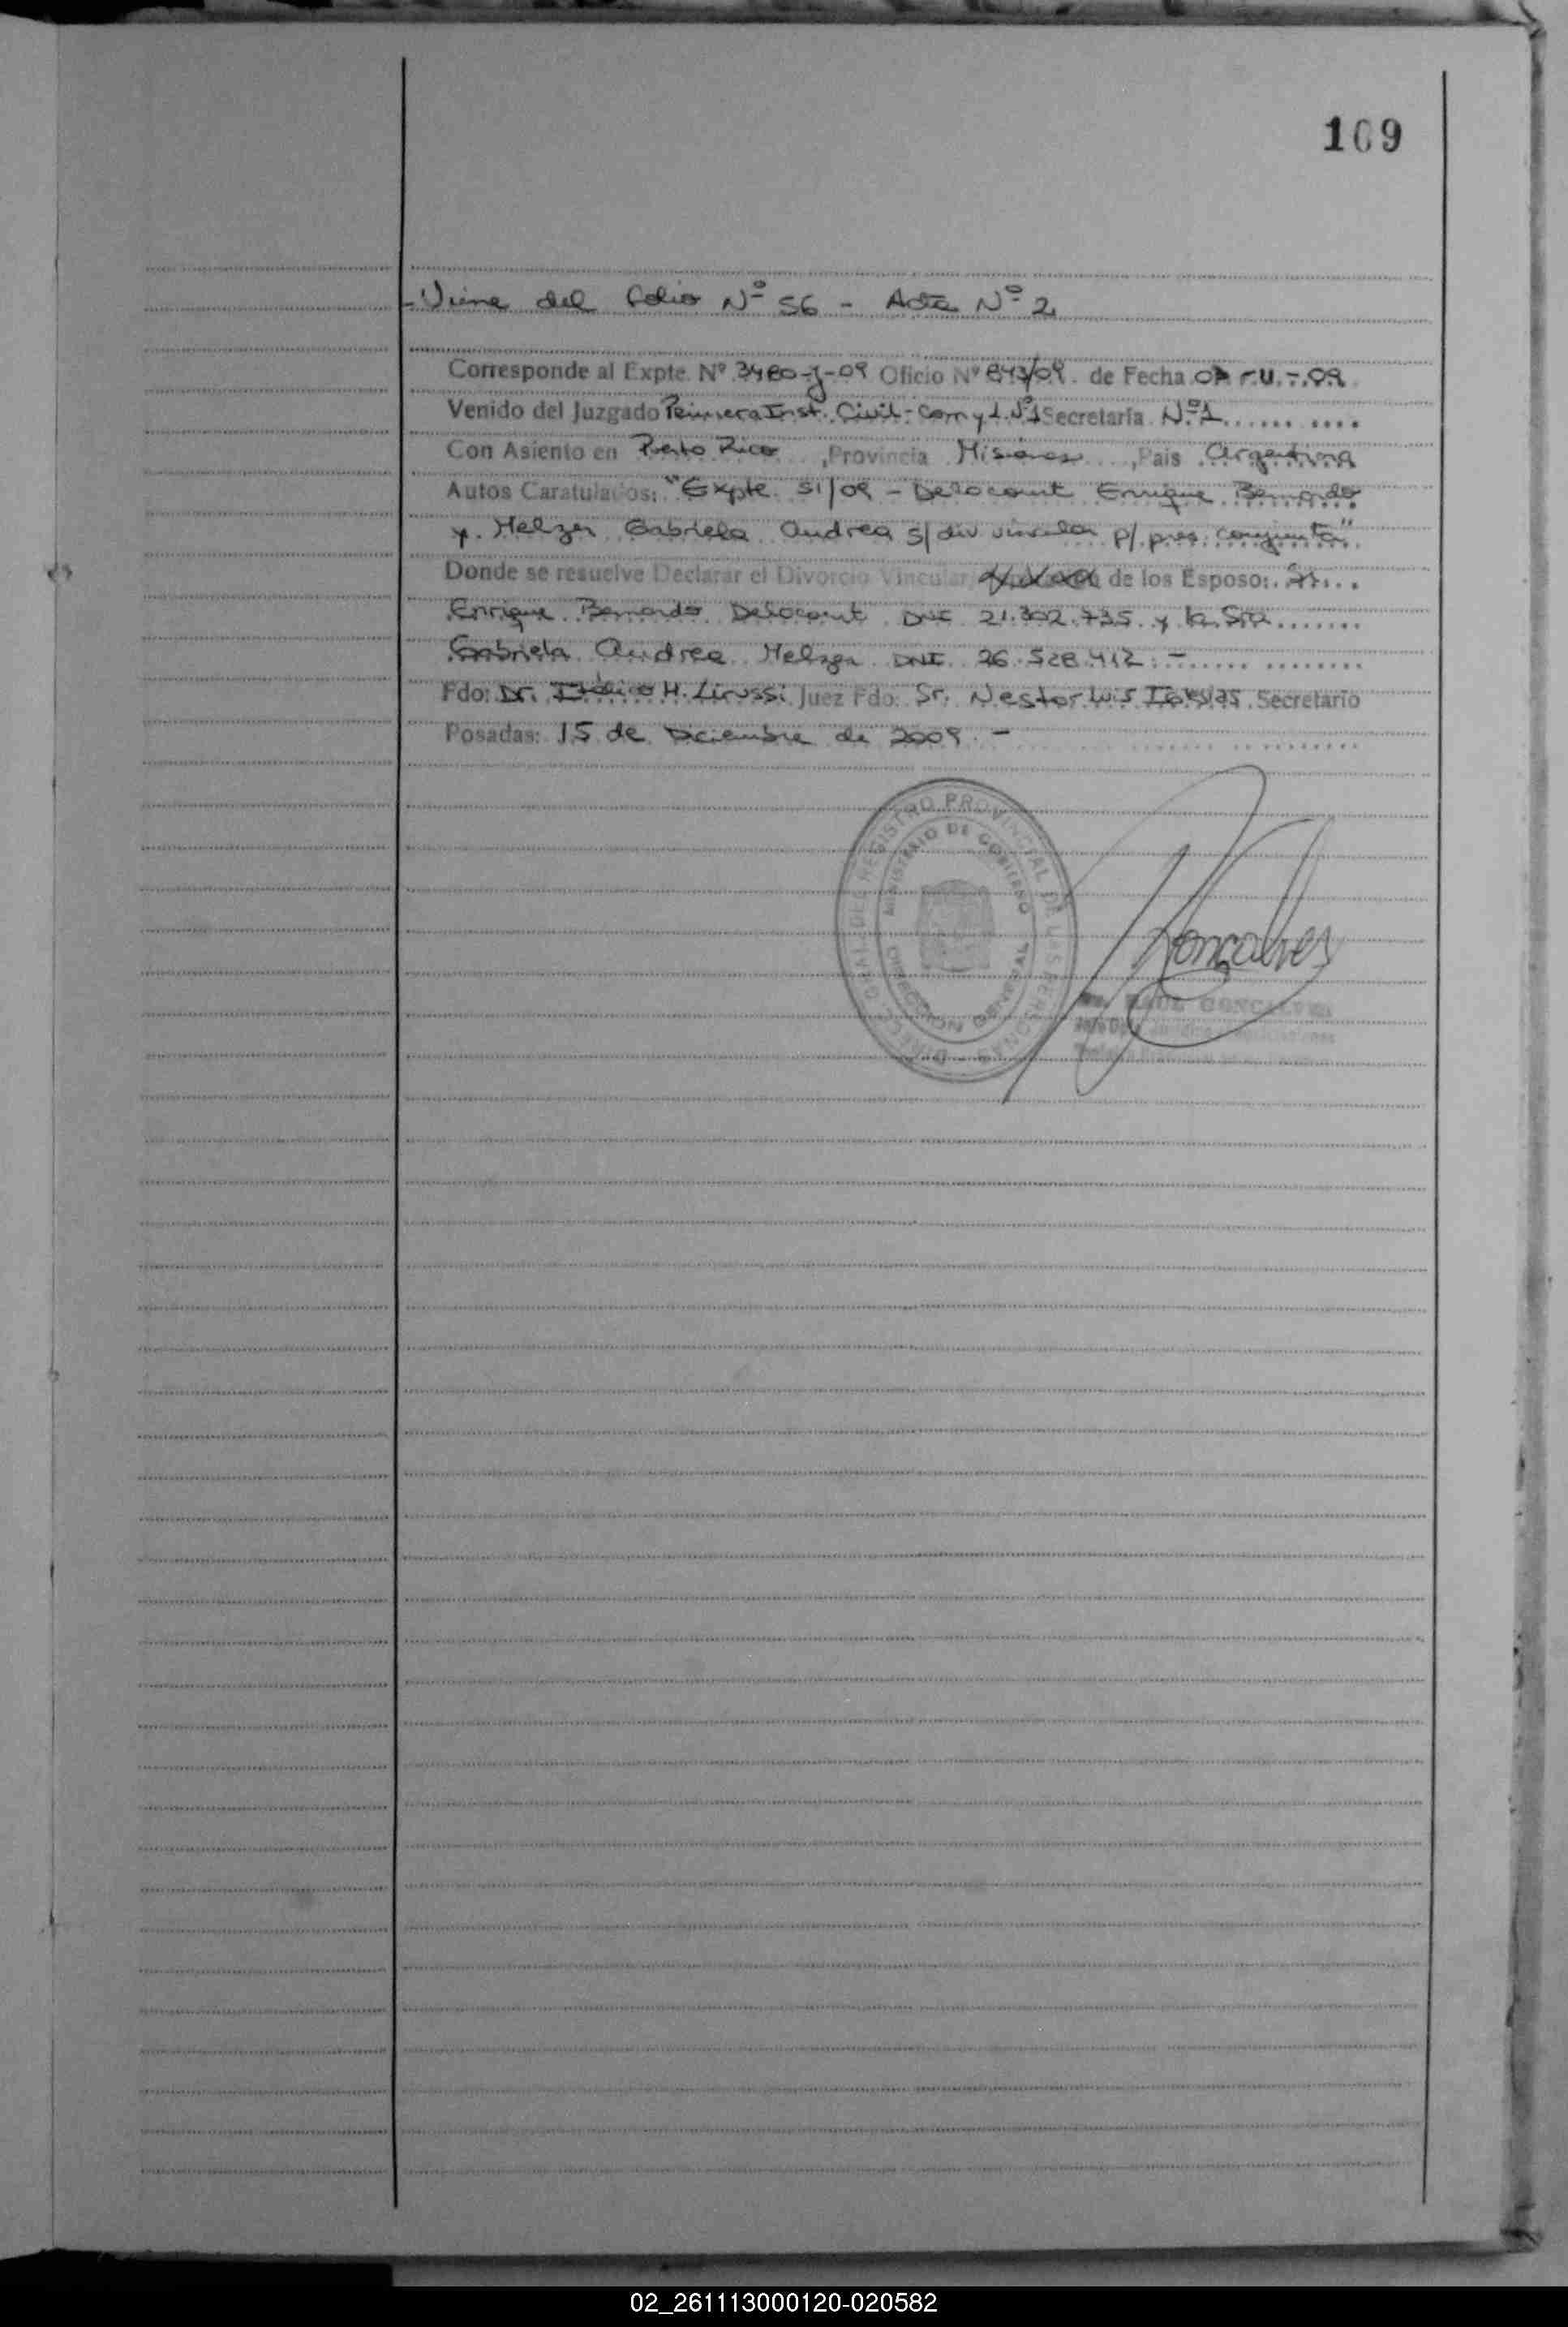 169
-Viene del folio Nº 56 - Acta Nº 2
Corresponde al Expte. Nº 3480-J-09 Oficio Nº 843/09. de Fecha
Venido del Juzgado Primera Inst. Civil - Com y L. Nº1 Secretaría Nº1
Con Asiento en Puerto Rico, Provincia Misiones, Pais Argentina
Autos Caratulados: "Expte. 51/09 - Delocourt Enrique Bernardo
y Melzer Gabriela Andrea s/ div vincular p/ pres. conjunta"
Donde se resuelve Declarar el Divorcio Vincular de los Esposo: Sr.
Enrique Bernardo Delocourt DNI 21.302.735 y la Sra
Gabriela Andrea Melzer DNI 26.528.412.-
Fdo: Dr. H. Lirussi Juez Fdo: Sr. Nestor Luis Iglesias Secretario
Posadas: 15 de Diciembre de 2009.-
DIREC. GRAL. DEL REGISTRO PROVINCIAL DE LAS PERSONAS
MINISTERIO DE GOBIERNO
DIRECCION GENERAL
Goncalves
RAUL GONCALVES
02_261113000120-020582